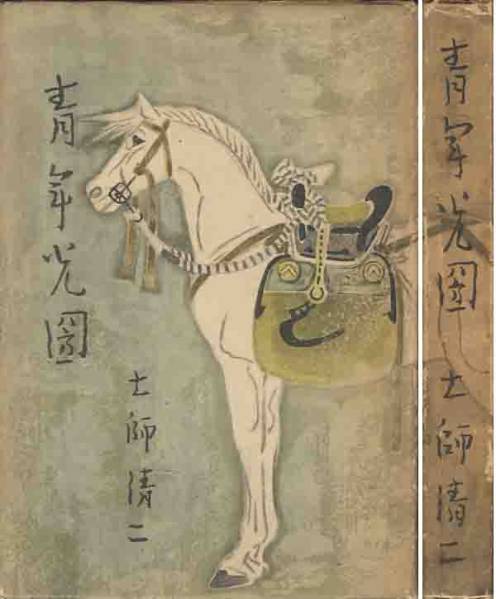 青年光圀
土師清二
青年光圀
土師清二